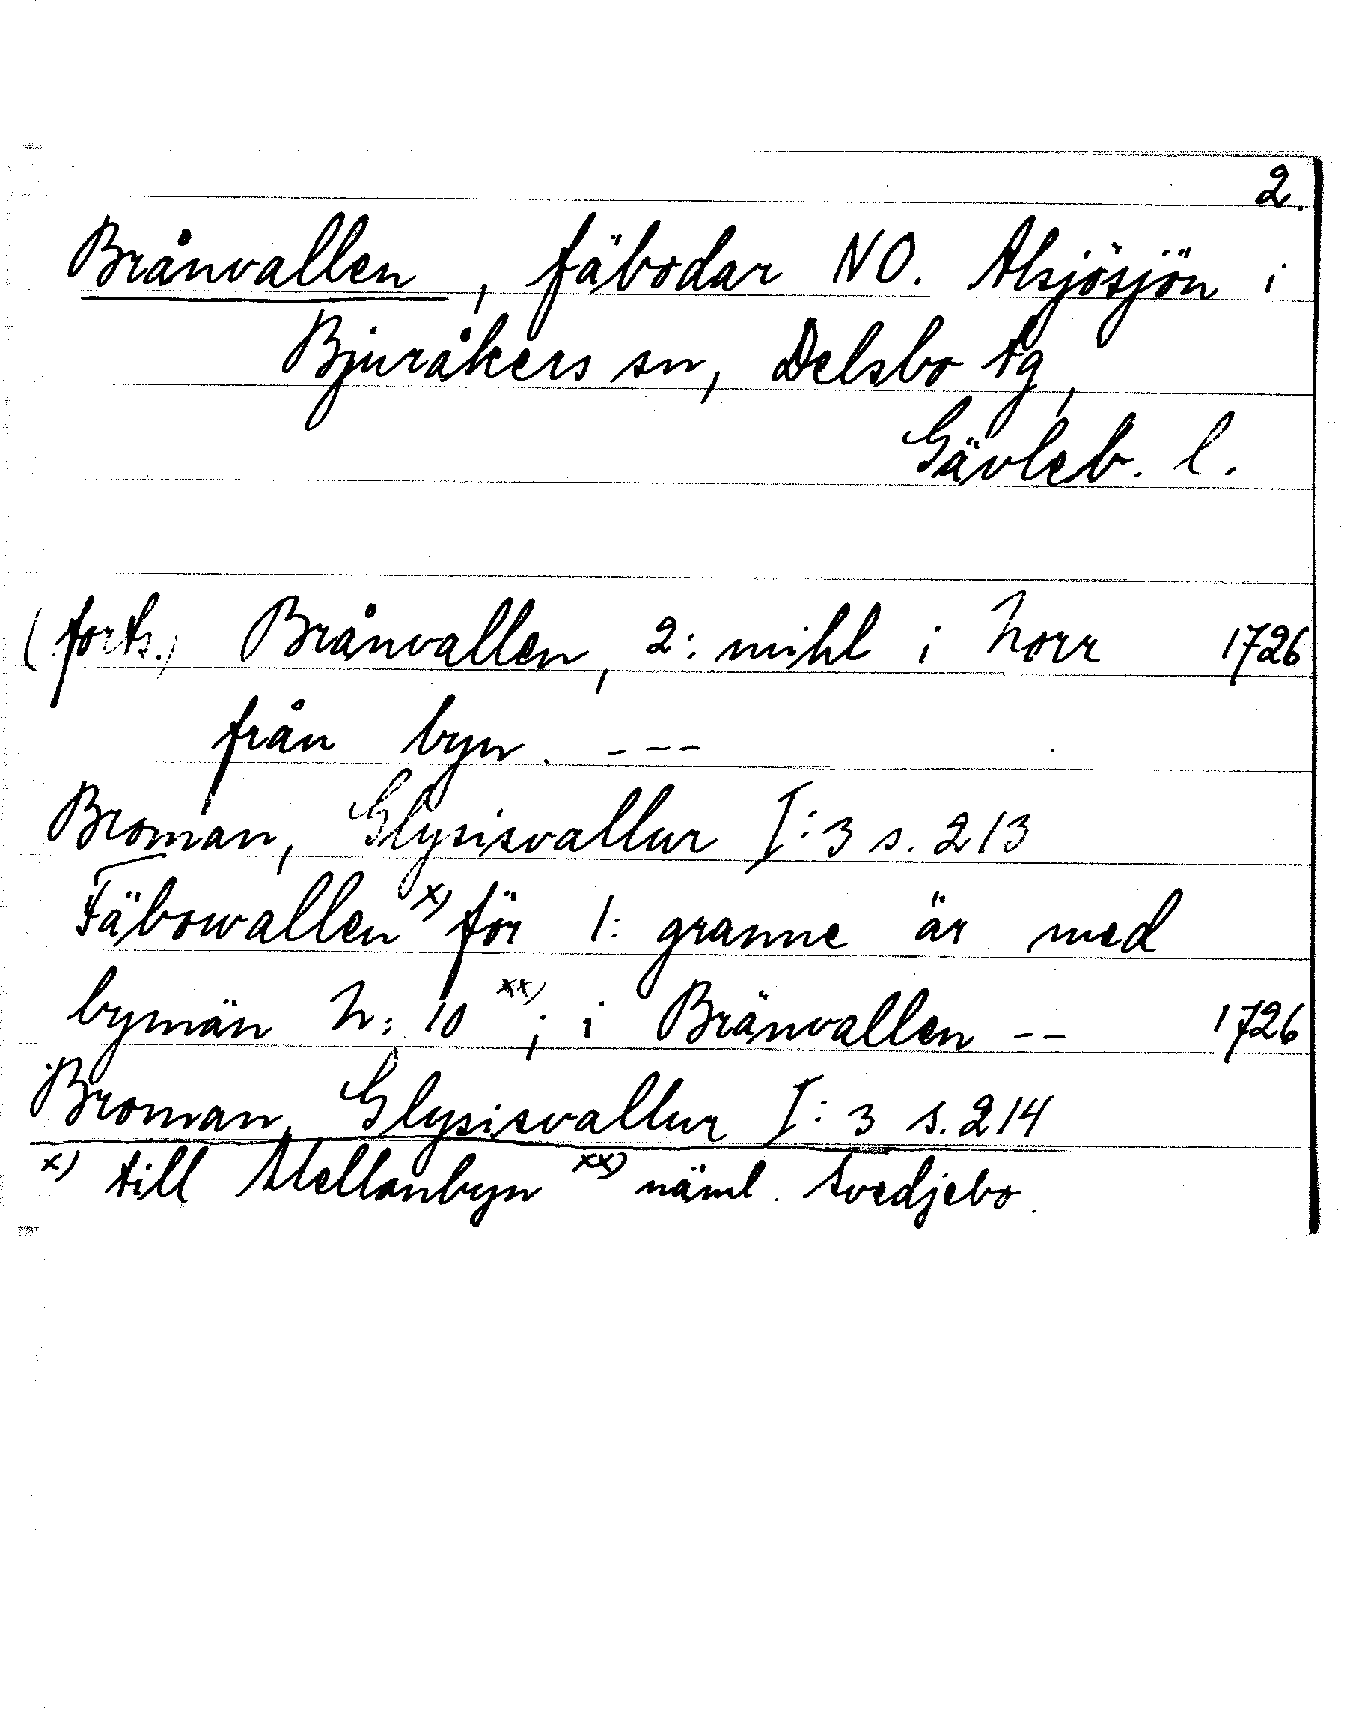 2.
Brånvallen, fäbodar NO. Alsjösjön i
Bjuråkers sn, Delsbo tg,
Gävleb. l.
(forts.) Brånvallen, 2: mihl i Norr 1726
från byn. ---
Broman, Glysisvallur I:3 s. 213
Fäbowallen x) för 1: granne är med
bymän N: 10 xx); i Brånvallen -- 1726
Broman, Glysisvallur I: 3 s. 214
x) till Mellanbyn xx) näml. Svedjebo.